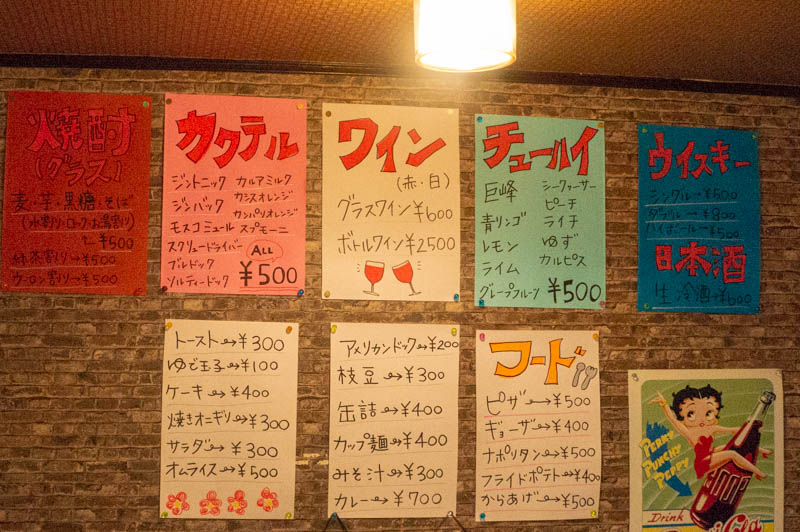 焼酎
(グラス)
麦・芋・黒糖・そば
(水割り・ロック・お湯割り)
¥500
緑茶割り→¥500
ウーロン割り→¥500
カクテル
ジントニック カルアミルク
ジンバック カシスオレンジ
カンパリオレンジ
モスコミュール スプモーニ
スクリュードライバー
ブルドック
ソルティードック
ALL
¥500
ワイン
(赤・白)
グラスワイン¥600
ボトルワイン¥2500
チューハイ
巨峰
青リンゴ
レモン
ライム
グレープフルーツ
シークァーサー
ピーチ
ライチ
ゆず
カルピス
¥500
ウイスキー
シングル→¥500
ダブル→¥800
ハイボール→¥500
日本酒
生冷酒→¥600
トースト→¥300
ゆで玉子→¥100
ケーキ→¥400
焼きオニギリ→¥300
サラダ→¥300
オムライス→¥500
アメリカンドック→¥200
枝豆→¥300
缶詰→¥400
カップ麺→¥400
みそ汁→¥300
カレー→¥700
フード
ピザ→¥500
ギョーザ→¥400
ナポリタン→¥500
フライドポテト→¥400
からあげ→¥500
PERKY
PUNCHY
PEPPY
Drink
Cola